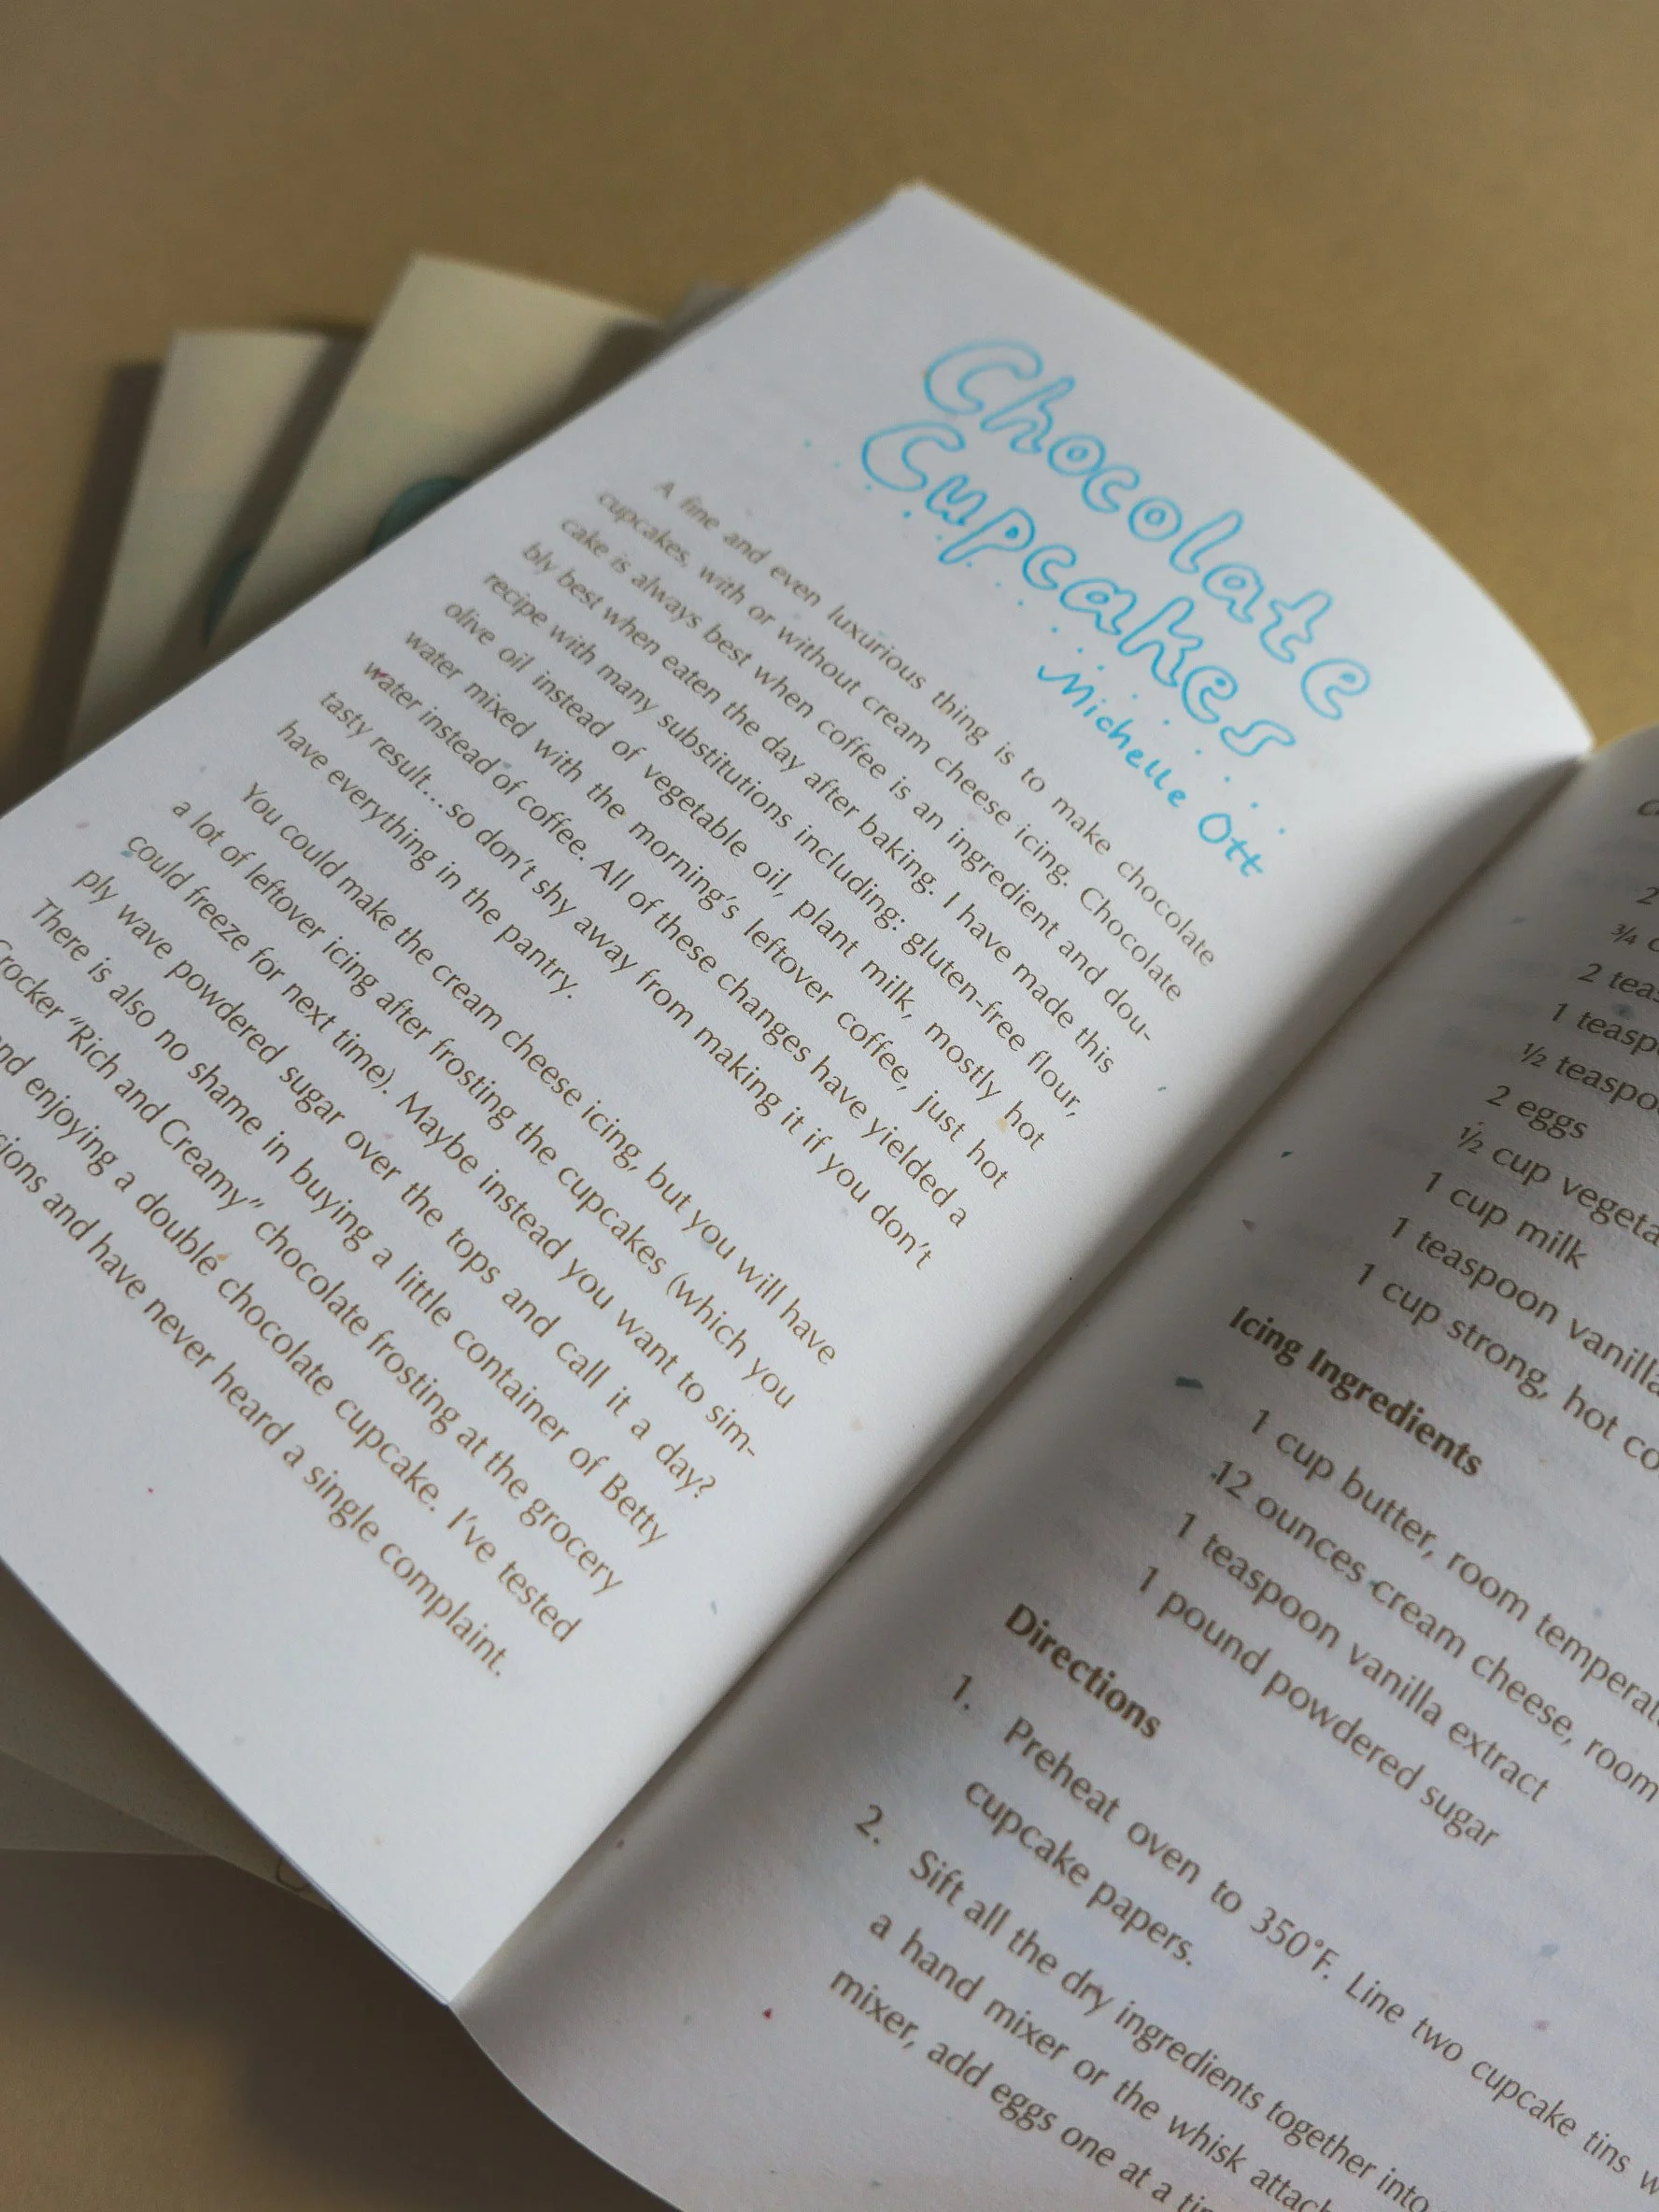 Chocolate
Cupcakes
Michelle Ott
A fine and even luxurious thing is to make chocolate
cupcakes, with or without cream cheese icing. Chocolate
cake is always best when coffee is an ingredient and dou-
bly best when eaten the day after baking. I have made this
recipe with many substitutions including: gluten-free flour,
olive oil instead of vegetable oil, plant milk, mostly hot
water mixed with the morning's leftover coffee, just hot
water instead of coffee. All of these changes have yielded a
tasty result...so don't shy away from making it if you don't
have everything in the pantry.
You could make the cream cheese icing, but you will have
a lot of leftover icing after frosting the cupcakes (which you
could freeze for next time). Maybe instead you want to sim-
ply wave powdered sugar over the tops and call it a day?
There is also no shame in buying a little container of Betty
Crocker "Rich and Creamy" chocolate frosting at the grocery
and enjoying a double chocolate cupcake. I've tested
and have never heard a single complaint.
2
3/4
2
1
1/2
2 eggs
1/2 cup
1 cup milk
1 teaspoon vanilla
1 cup strong, hot
Icing Ingredients
1 cup butter, room
12 ounces cream cheese, room
1 teaspoon vanilla extract
1 pound powdered sugar
Directions
1. Preheat oven to 350°F. Line two cupcake tins
cupcake papers.
2. Sift all the dry ingredients together into
a hand mixer or the whisk
mixer, add eggs one at a